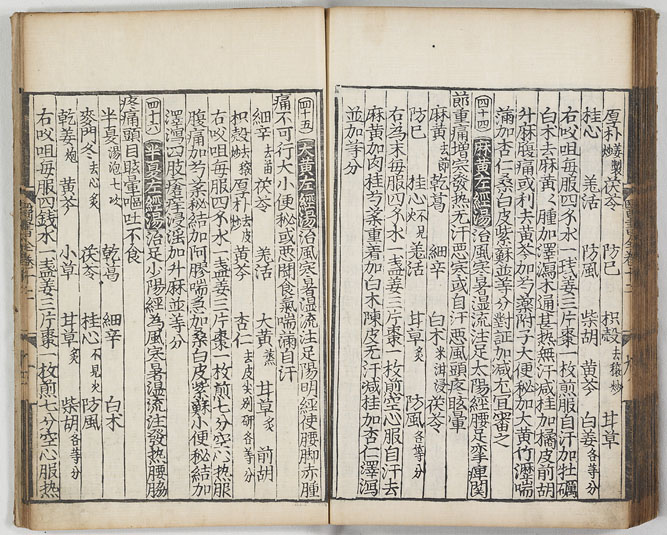 厚朴姜製炒 茯苓 防己 枳殼去穰炒 甘草
桂心 羌活 防風 柴胡 黄芩 白姜各等分
右㕮咀每服四夕水一琖姜三片棗一枚煎服自汗加牡礪
白朮去麻黄〻腫加澤瀉木通甚热無汗減桂加橘皮前胡
升麻腹痛或利去黄芩加芍藥附子大便秘加大黄竹瀝喘
满加杏仁桑白皮紫蘇並等分對証加减尤宜審之
四十四 麻黄左經湯 治風寒暑湿流注足太陽經腰足挛痺関
節重痛增寒發热无汗悪寒或自汗悪風頭疼眩暈
麻黄去莭 乾葛 細辛 白朮米泔浸 茯苓
防己 桂心不見火 羌活 甘草炙 防風各等分
右為末每服四夕水一盞姜三片棗一枚煎空心服自汗去
麻黄加肉桂芍藥重着加白朮陳皮无汗减桂加杏仁澤瀉
並加等分
四十五 大黄左經湯 治風寒暑湿流注足陽明經使腰脚赤腫
痛不可行大小便秘或悪聞食氣喘滿自汗
細辛去苗 茯苓 羌活 大黄蒸 甘草炙 前胡
枳殼炒去穰 厚朴炒去皮 黄芩 杏仁去皮尖别研各等分
右㕮咀每服四夕水一盞姜三片棗一枚煎七分空心热服
腹痛加芍藥秘結加阿膠喘急加桑白皮紫蘇小便秘結加
澤瀉四肢瘡痒浸淫加升麻並等分
四十六 半夏左經湯 治足少陽經為風寒暑湿流注發热腰脇
疼痛頭目眩暈嘔吐不食
半夏湯泡七次 乾葛 細辛 白朮
麥門冬去心炙 茯苓 桂心不見火 防風
乾姜炮 黄芩 小草 甘草炙 柴胡各等分
右㕮咀每服四錢水一盞姜三片棗一枚煎七分空心服热